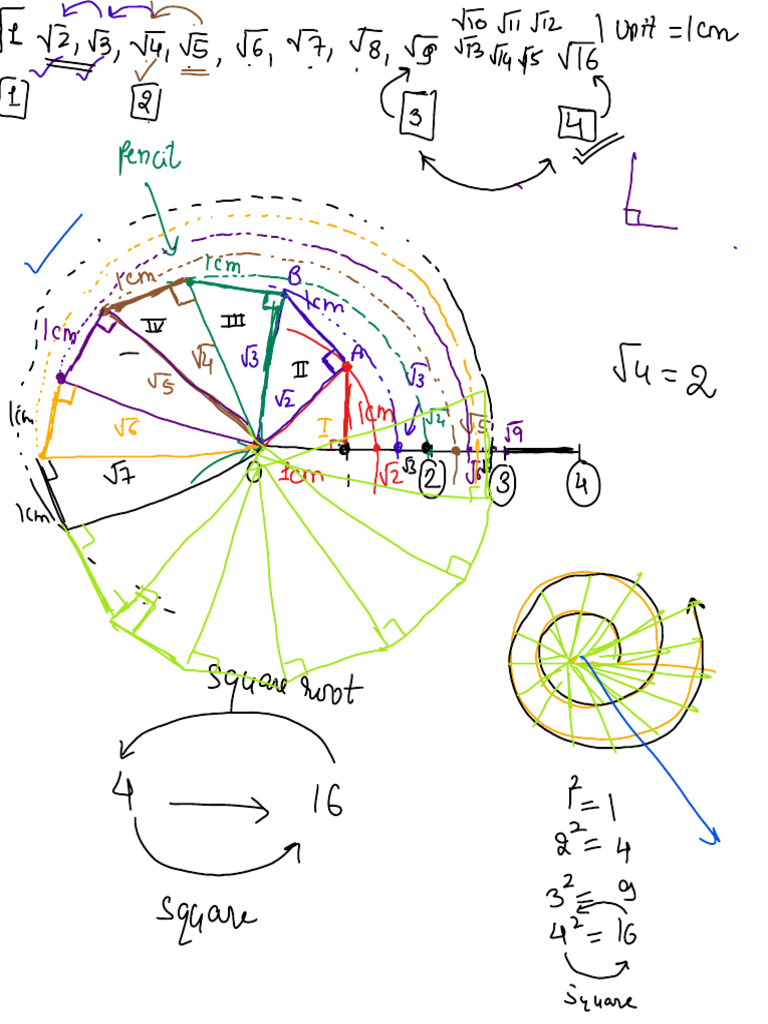 √1 √2, √3, √4, √5, √6, √7, √8, √9 √10 √11 √12 √13 √14 √15 √16 1 unit = 1cm
1 2 3 4
Pencil
1cm 1cm B 1cm
1cm IV III II A
√5 √4 √3 √2 I 1cm √3 √4 √5
√4 = 2
1cm √6
√7 O 1cm 1 √2 √3 2 √6 3 √9 4
1cm
square root
4 16
square
1² = 1
2² = 4
3² = 9
4² = 16
square